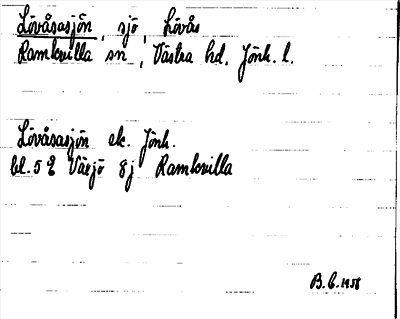 Lövåsasjön, sjö, Lövås
Ramkvilla sn, Västra hd, Jönk. l.
Lövåsasjön ek. Jönk.
bl. 5 Värjö 8j Ramkvilla
B.C. 1958